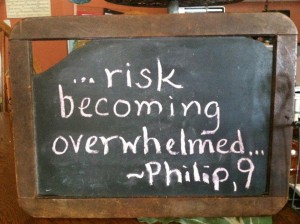 ...risk
becoming
overwhelmed...
~Philip, 9